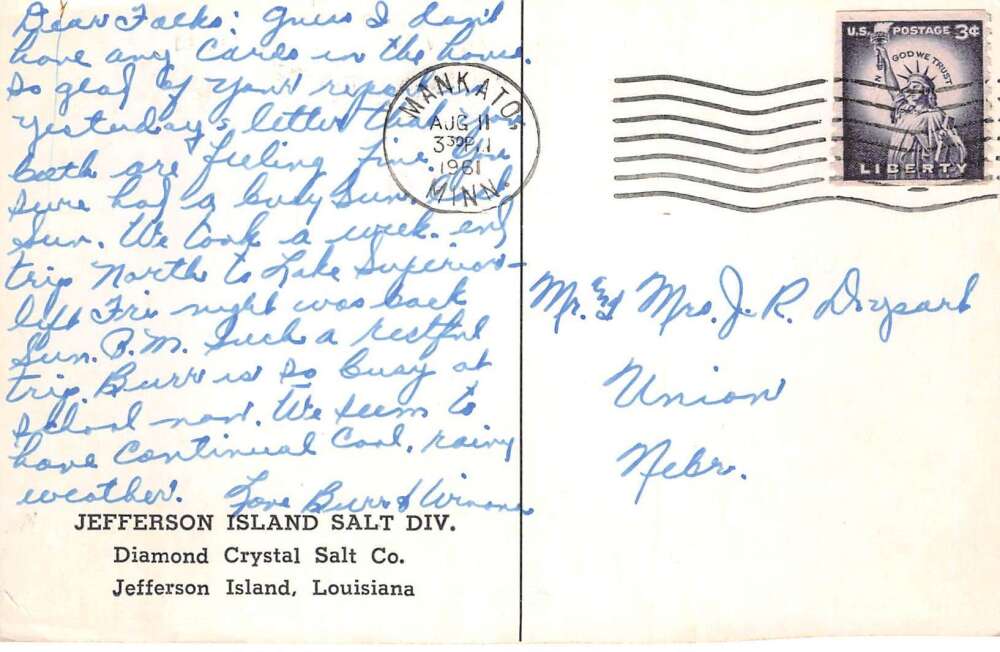 Dear Folks: Guess I don't
have any cards in the house.
So glad of your report in
yesterday's letter that you
both are feeling fine. We
sure had a busy Sun.
Sun. We took a week-end
trip North to Lake Superior-
left Fri night was back
Sun. P.M. Such a restful
trip. Burr is so busy at
school now. We seem to
have continual cool, rainy
weather. Love Burr & Winona
JEFFERSON ISLAND SALT DIV.
Diamond Crystal Salt Co.
Jefferson Island, Louisiana
MANKATO
AUG 11
330 PM
1961
MINN.
U.S. POSTAGE 3¢
IN GOD WE TRUST
LIBERTY
Mr. & Mrs. J. R. Drysart
Union
Nebr.